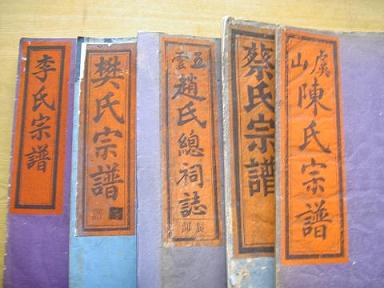 李氏宗譜
樊氏宗譜
五雲趙氏總祠誌
蔡氏宗譜
虞山陳氏宗譜